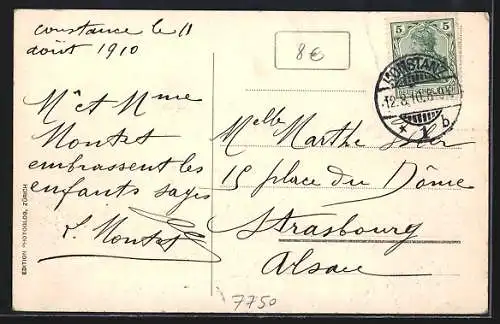 Constance le 11
août 1910
8€
5
5
KONSTANZ
12.8.10.
* 1 b
Mr et Mme
Montet
embrassent les
enfants sages
L. Montet
Melle Marthe
15 place du Dôme
Strasbourg
Alsace
EDITION PHOTOGLOB, ZÜRICH
7750